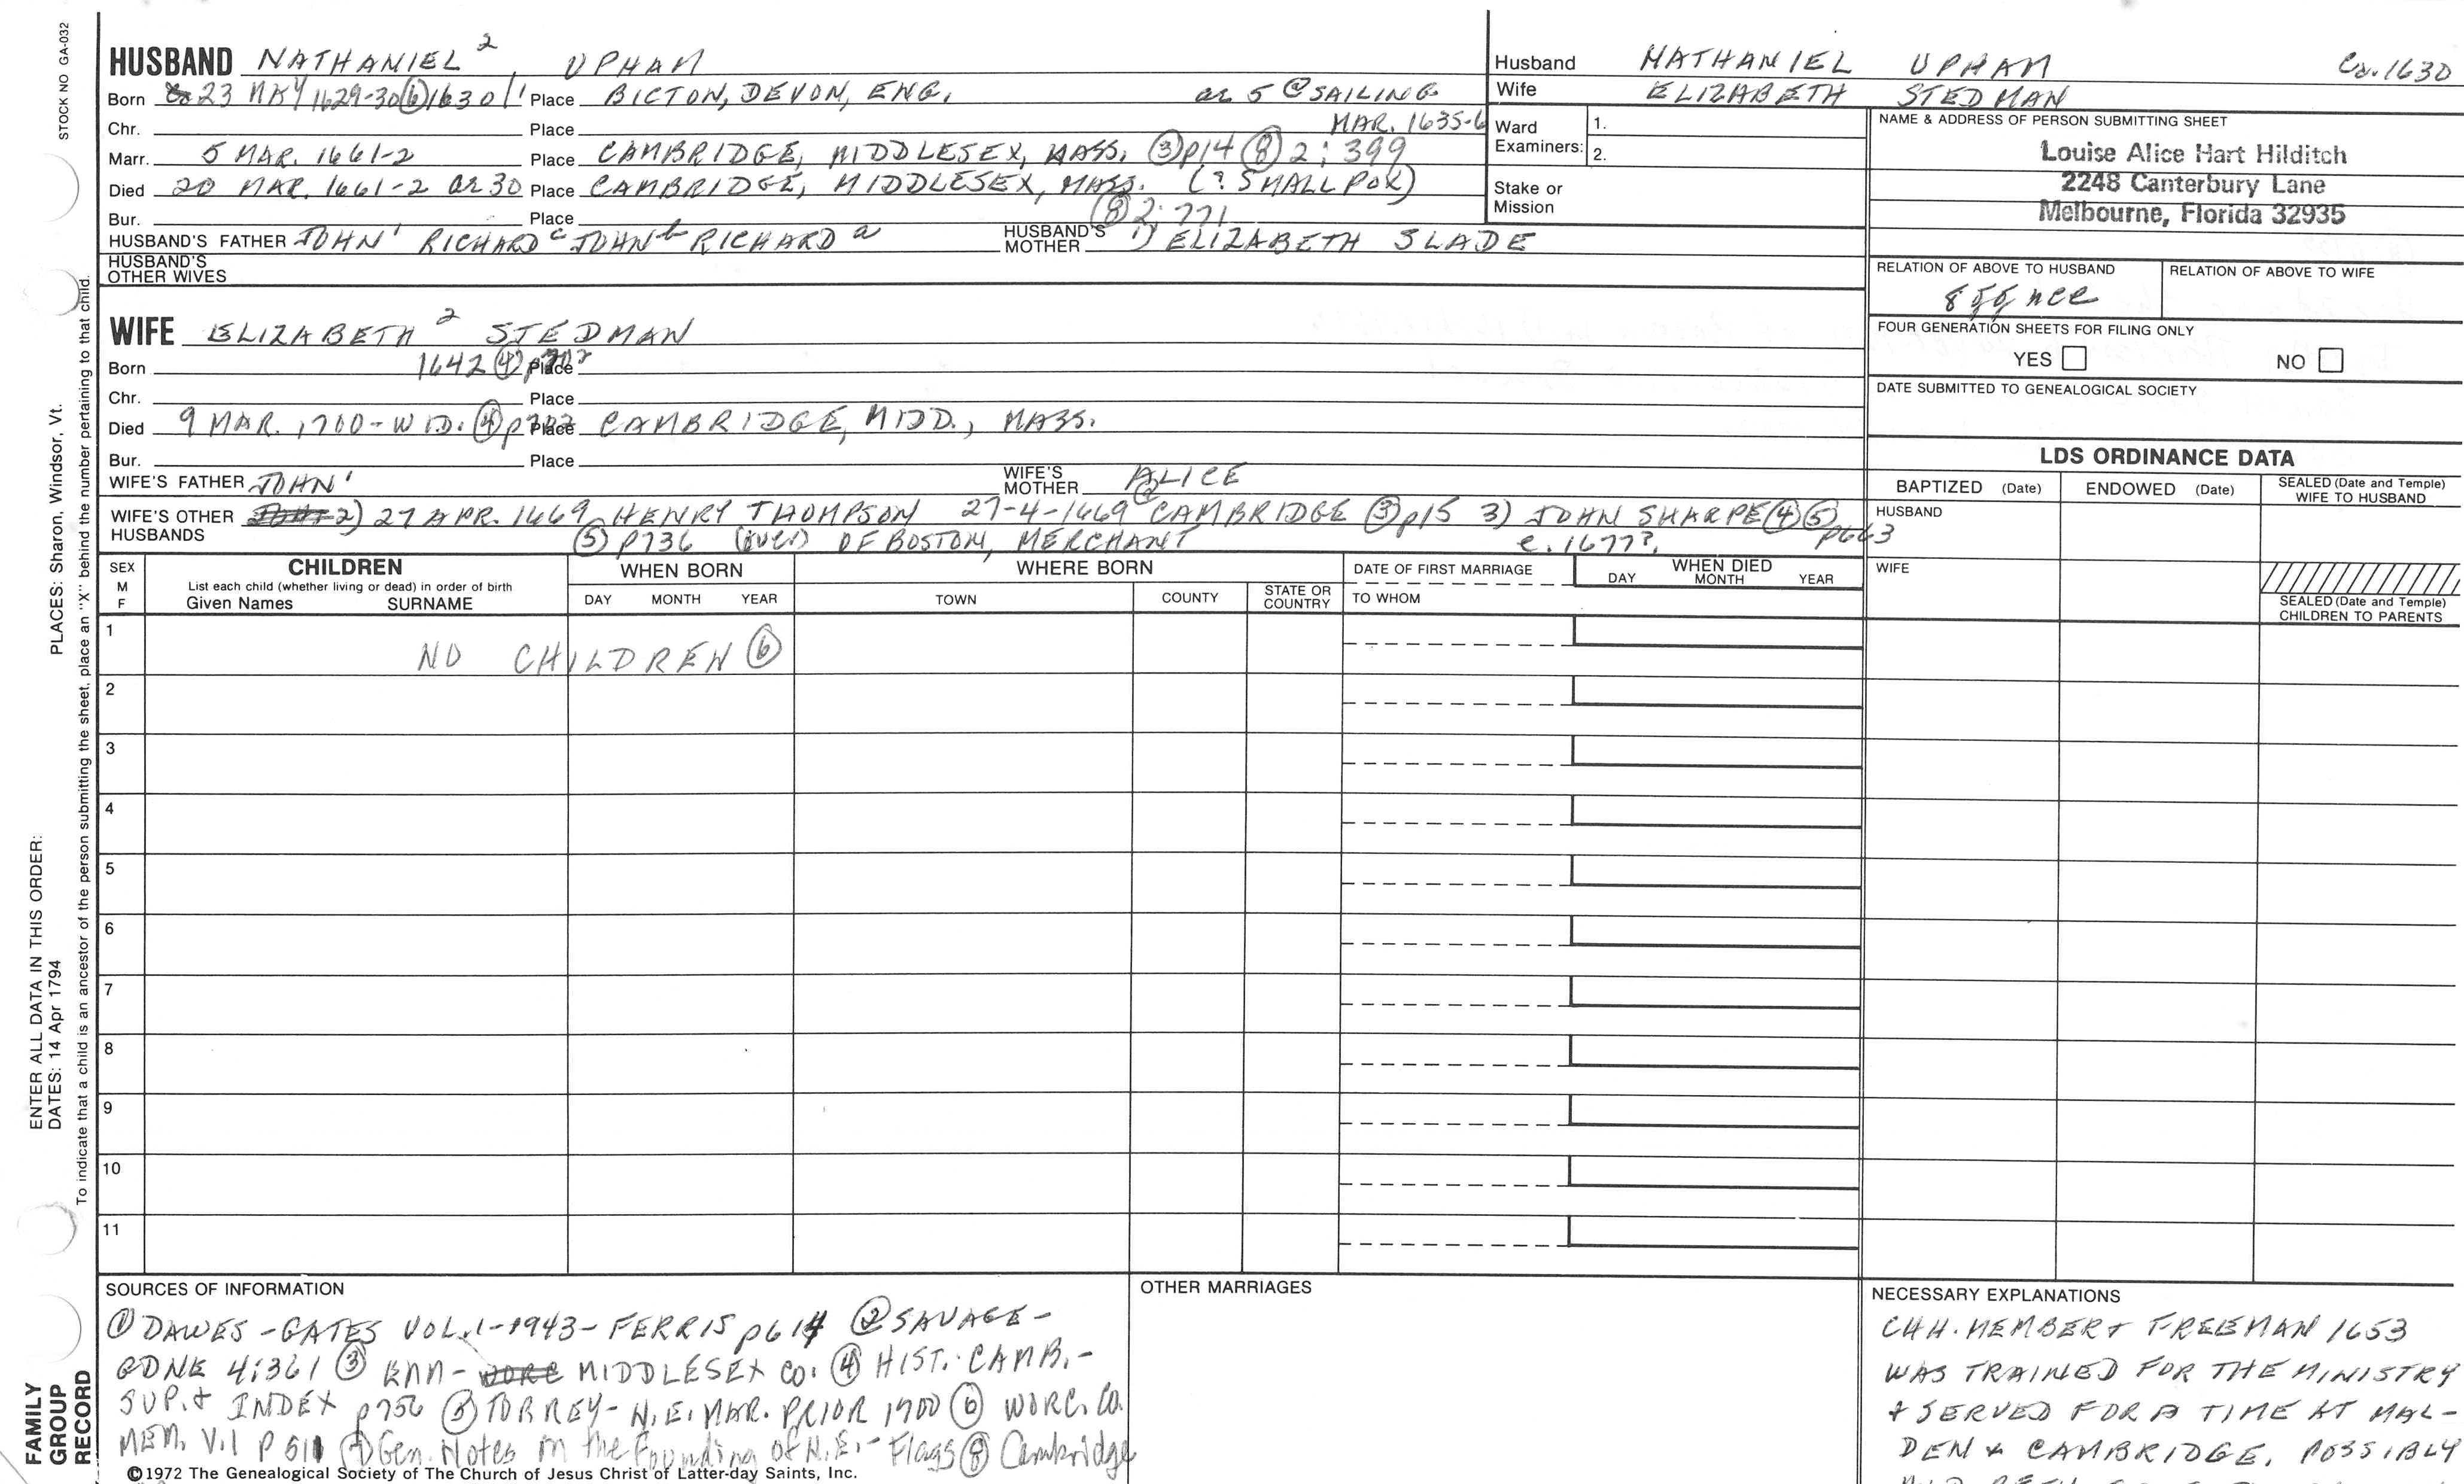 STOCK NO GA-032
PLACES: Sharon, Windsor, Vt.
ENTER ALL DATA IN THIS ORDER:
DATES: 14 Apr 1794
To indicate that a child is an ancestor of the person submitting the sheet, place an "X" behind the number pertaining to that child.
FAMILY
GROUP
RECORD
HUSBAND NATHANIEL 2, UPHAM
Born 23 MAY 1629-30 ⑥ 1630/1 Place BICTON, DEVON, ENG. ae 5 @ SAILING
Chr. Place MAR. 1635-6
Marr. 5 MAR. 1661-2 Place CAMBRIDGE, MIDDLESEX, MASS. ③ p14 ⑧ 2:399
Died 20 MAR. 1661-2 ae 30 Place CAMBRIDGE, MIDDLESEX, MASS. (? SMALL POX)
Bur. Place ⑧ 2:771
HUSBAND'S FATHER JOHN 1 RICHARD c JOHN b RICHARD a HUSBAND'S MOTHER 1) ELIZABETH SLADE
HUSBAND'S
OTHER WIVES
WIFE ELIZABETH 2 STEDMAN
Born 1642 ④ Place
Chr. Place
Died 9 MAR. 1700-WID. ④ Place CAMBRIDGE, MIDD., MASS.
Bur. Place
WIFE'S FATHER JOHN 1 WIFE'S MOTHER ALICE
WIFE'S OTHER 2) 27 APR. 1669 HENRY THOMPSON 27-4-1669 CAMBRIDGE ③ p15 3) JOHN SHARPE ④ ⑤ p663
HUSBANDS ⑤ p736 (over) OF BOSTON, MERCHANT c. 1677?
Husband NATHANIEL UPHAM Ca. 1630
Wife ELIZABETH STEDMAN
Ward
Examiners:
1.
2.
Stake or
Mission
NAME & ADDRESS OF PERSON SUBMITTING SHEET
Louise Alice Hart Hilditch
2248 Canterbury Lane
Melbourne, Florida 32935
RELATION OF ABOVE TO HUSBAND RELATION OF ABOVE TO WIFE
FOUR GENERATION SHEETS FOR FILING ONLY
YES NO
DATE SUBMITTED TO GENEALOGICAL SOCIETY
LDS ORDINANCE DATA
BAPTIZED (Date) ENDOWED (Date) SEALED (Date and Temple)
WIFE TO HUSBAND
HUSBAND
WIFE
SEALED (Date and Temple)
CHILDREN TO PARENTS
SEX
M
F
CHILDREN
List each child (whether living or dead) in order of birth
Given Names SURNAME
WHEN BORN
DAY MONTH YEAR
WHERE BORN
TOWN COUNTY STATE OR COUNTRY
DATE OF FIRST MARRIAGE
TO WHOM
WHEN DIED
DAY MONTH YEAR
1
NO CHILDREN ⑥
2
3
4
5
6
7
8
9
10
11
SOURCES OF INFORMATION
① DAWES-GATES VOL. 1-1943-FERRIS p614 ② SAVAGE-
GDNE 4:361 ③ MIDDLESEX CO. ④ HIST. CAMB.-
SUP. + INDEX p756 ⑤ TORREY-N.E. MAR. PRIOR 1700 ⑥ WORC. CO.
MEM. V.1 P 511 ⑦ Gen. Notes on the Founding of N.E.- Flagg ⑧ Cambridge
OTHER MARRIAGES
NECESSARY EXPLANATIONS
CHH. MEMBER + FREEMAN 1653
WAS TRAINED FOR THE MINISTRY
+ SERVED FOR A TIME AT MAL-
DEN & CAMBRIDGE, POSSIBLY
©1972 The Genealogical Society of The Church of Jesus Christ of Latter-day Saints, Inc.